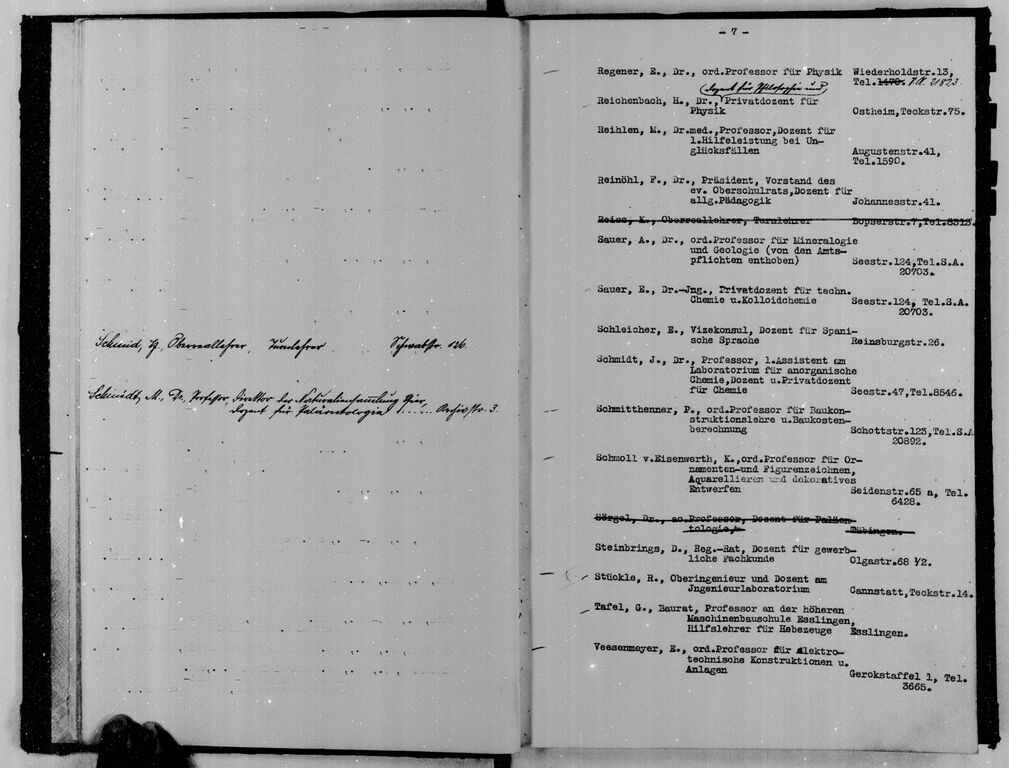 Schmid, G, Oberreallehrer, Turnlehrer Schwabstr. 126.
Schmidt, M, Dr, Professor, Direktor der Naturaliensammlung hier,
Dozent für Paläontologie ...... Archivstr. 3.
- 7 -
Regener, E., Dr., ord.Professor für Physik Wiederholdstr.13,
Tel.1470. 21823
Dozent für Philosophie und
Reichenbach, H., Dr., Privatdozent für
Physik Ostheim,Teckstr.75.
Reihlen, M., Dr.med.,Professor,Dozent für
1.Hilfeleistung bei Un-
glücksfällen Augustenstr.41,
Tel.1590.
Reinöhl, F., Dr., Präsident, Vorstand des
ev. Oberschulrats,Dozent für
allg.Pädagogik Johannesstr.41.
Reiss, K., Oberreallehrer, Turnlehrer Bopserstr.7,Tel.8313.
Sauer, A., Dr., ord.Professor für Mineralogie
und Geologie (von den Amts-
pflichten enthoben) Seestr.124,Tel.S.A.
20703.
Sauer, E., Dr.-Jng., Privatdozent für techn.
Chemie u.Kolloidchemie Seestr.124, Tel.S.A.
20703.
Schleicher, E., Vizekonsul, Dozent für Spani-
sche Sprache Reinsburgstr.26.
Schmidt, J., Dr., Professor, 1.Assistent am
Laboratorium für anorganische
Chemie,Dozent u.Privatdozent
für Chemie Seestr.47,Tel.8546.
Schmitthenner, P., ord.Professor für Baukon-
struktionslehre u.Baukosten-
berechnung Schottstr.123,Tel.S.A
20892.
Schmoll v.Eisenwerth, K.,ord.Professor für Or-
namenten-und Figurenzeichnen,
Aquarellieren und dekoratives
Entwerfen Seidenstr.65 a, Tel.
6428.
Sörgel, Dr., ao.Professor, Dozent für Paläon-
tologie, Tübingen.
Steinbrings, D., Reg.-Rat, Dozent für gewerb-
liche Fachkunde Olgastr.68 1/2.
Stückle, R., Oberingenieur und Dozent am
Jngenieurlaboratorium Cannstatt,Teckstr.14.
Tafel, G., Baurat, Professor an der höheren
Maschinenbauschule Esslingen,
Hilfslehrer für Hebezeuge Esslingen.
Veesenmeyer, E., ord.Professor für Elektro-
technische Konstruktionen u.
Anlagen Gerokstaffel 1, Tel.
3665.